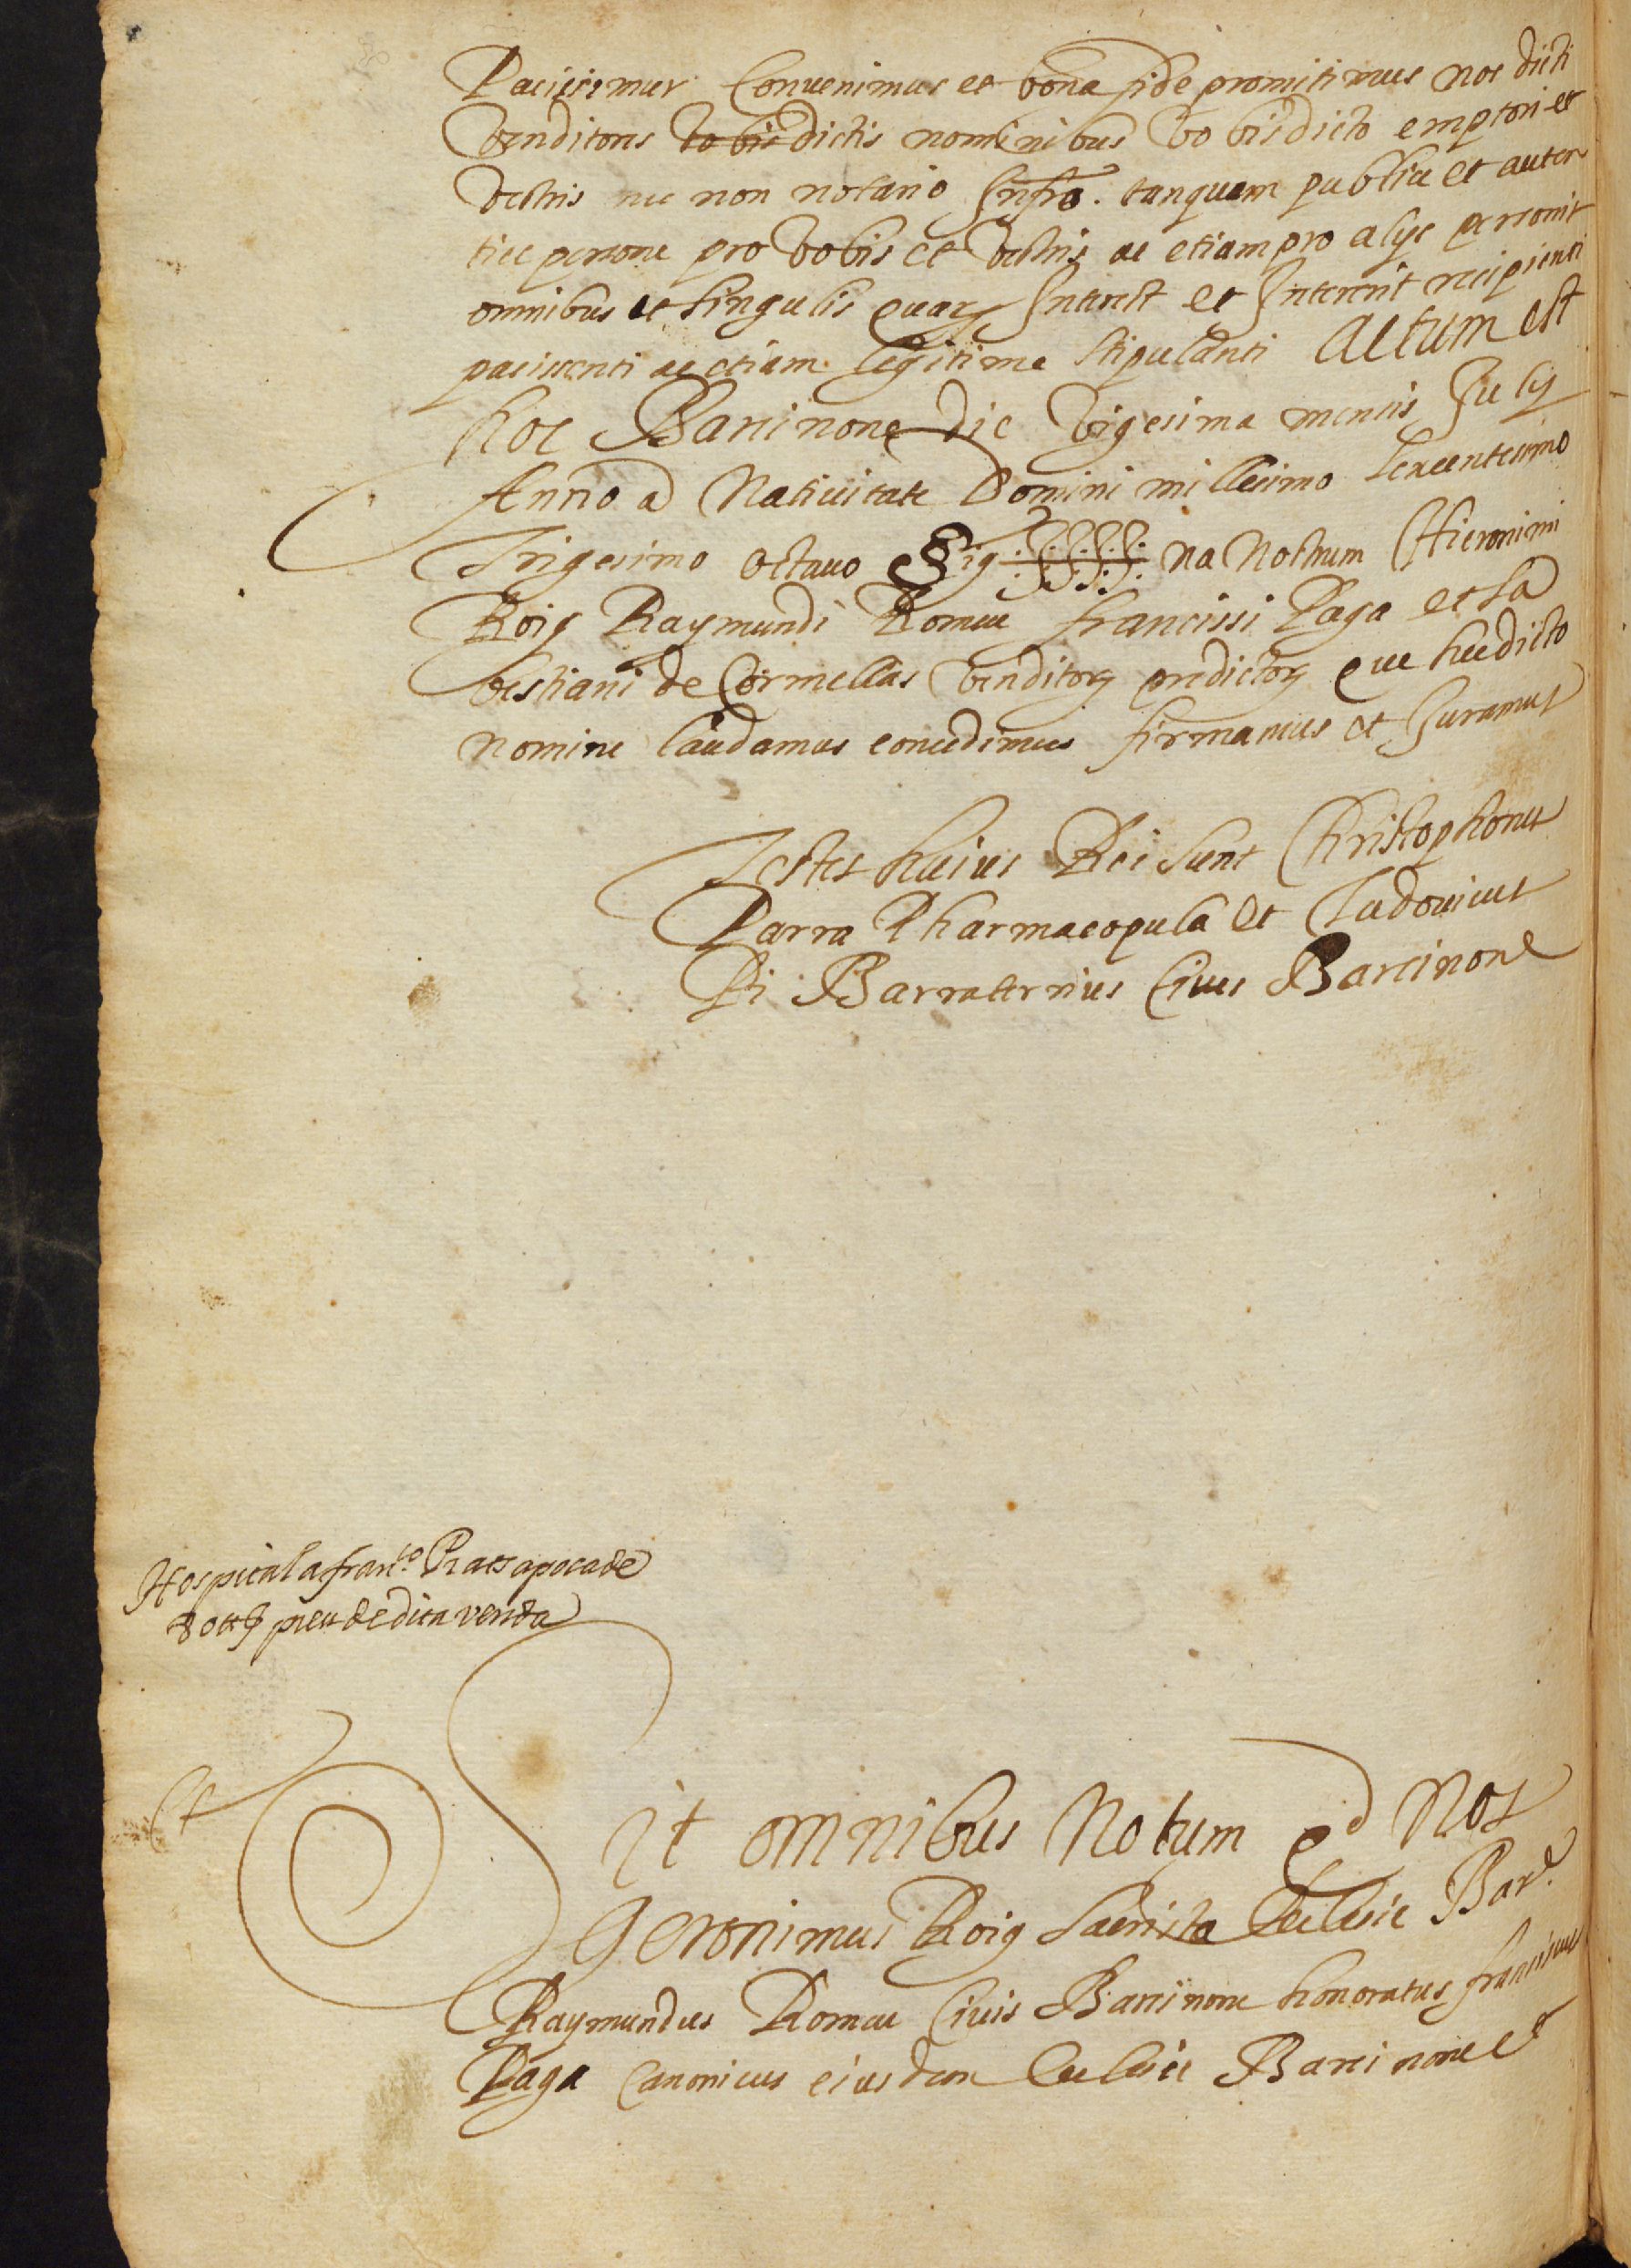 Paciscimur Convenimus et bona fide promitimus nos dicti
venditores vobis dictis nominibus vobis dicto emptori et
vestris nec non notario Infro. tanquam publice et auten
tice persone pro vobis et vestris ac etiam pro alys personis
omnibus et singulis quarum Interest et Intererit recipienti
paciscenti ac etiam legitime stipulanti Actum est
hoc Barcinone die vigesima mensis July
Anno a Nativitate Domini millesimo sexcentesimo
Trigesimo octavo Sig na Nostrum Hieronimi
Roig Raymundi Romeu francissi Paga et Sa
bestiani de Cormellas venditorum predictorum que hec dicto
nomine laudamus concedimus firmamus et Juramus
Testes huius Rei sunt Christophorus
Parra Pharmacopula et Ludovicus
Pi Barraterrius Cives Barcinone
Hospital a franco. Prats apoca de
preu de dita venda
Sit omnibus Notum qd Nos
Geronimus Roig Sacrista Eclesie Bare.
Raymundus Romeu Civis Barcinone honoratus franciscus
Paga Canonicus eiusdem Eclesie Barcinone et